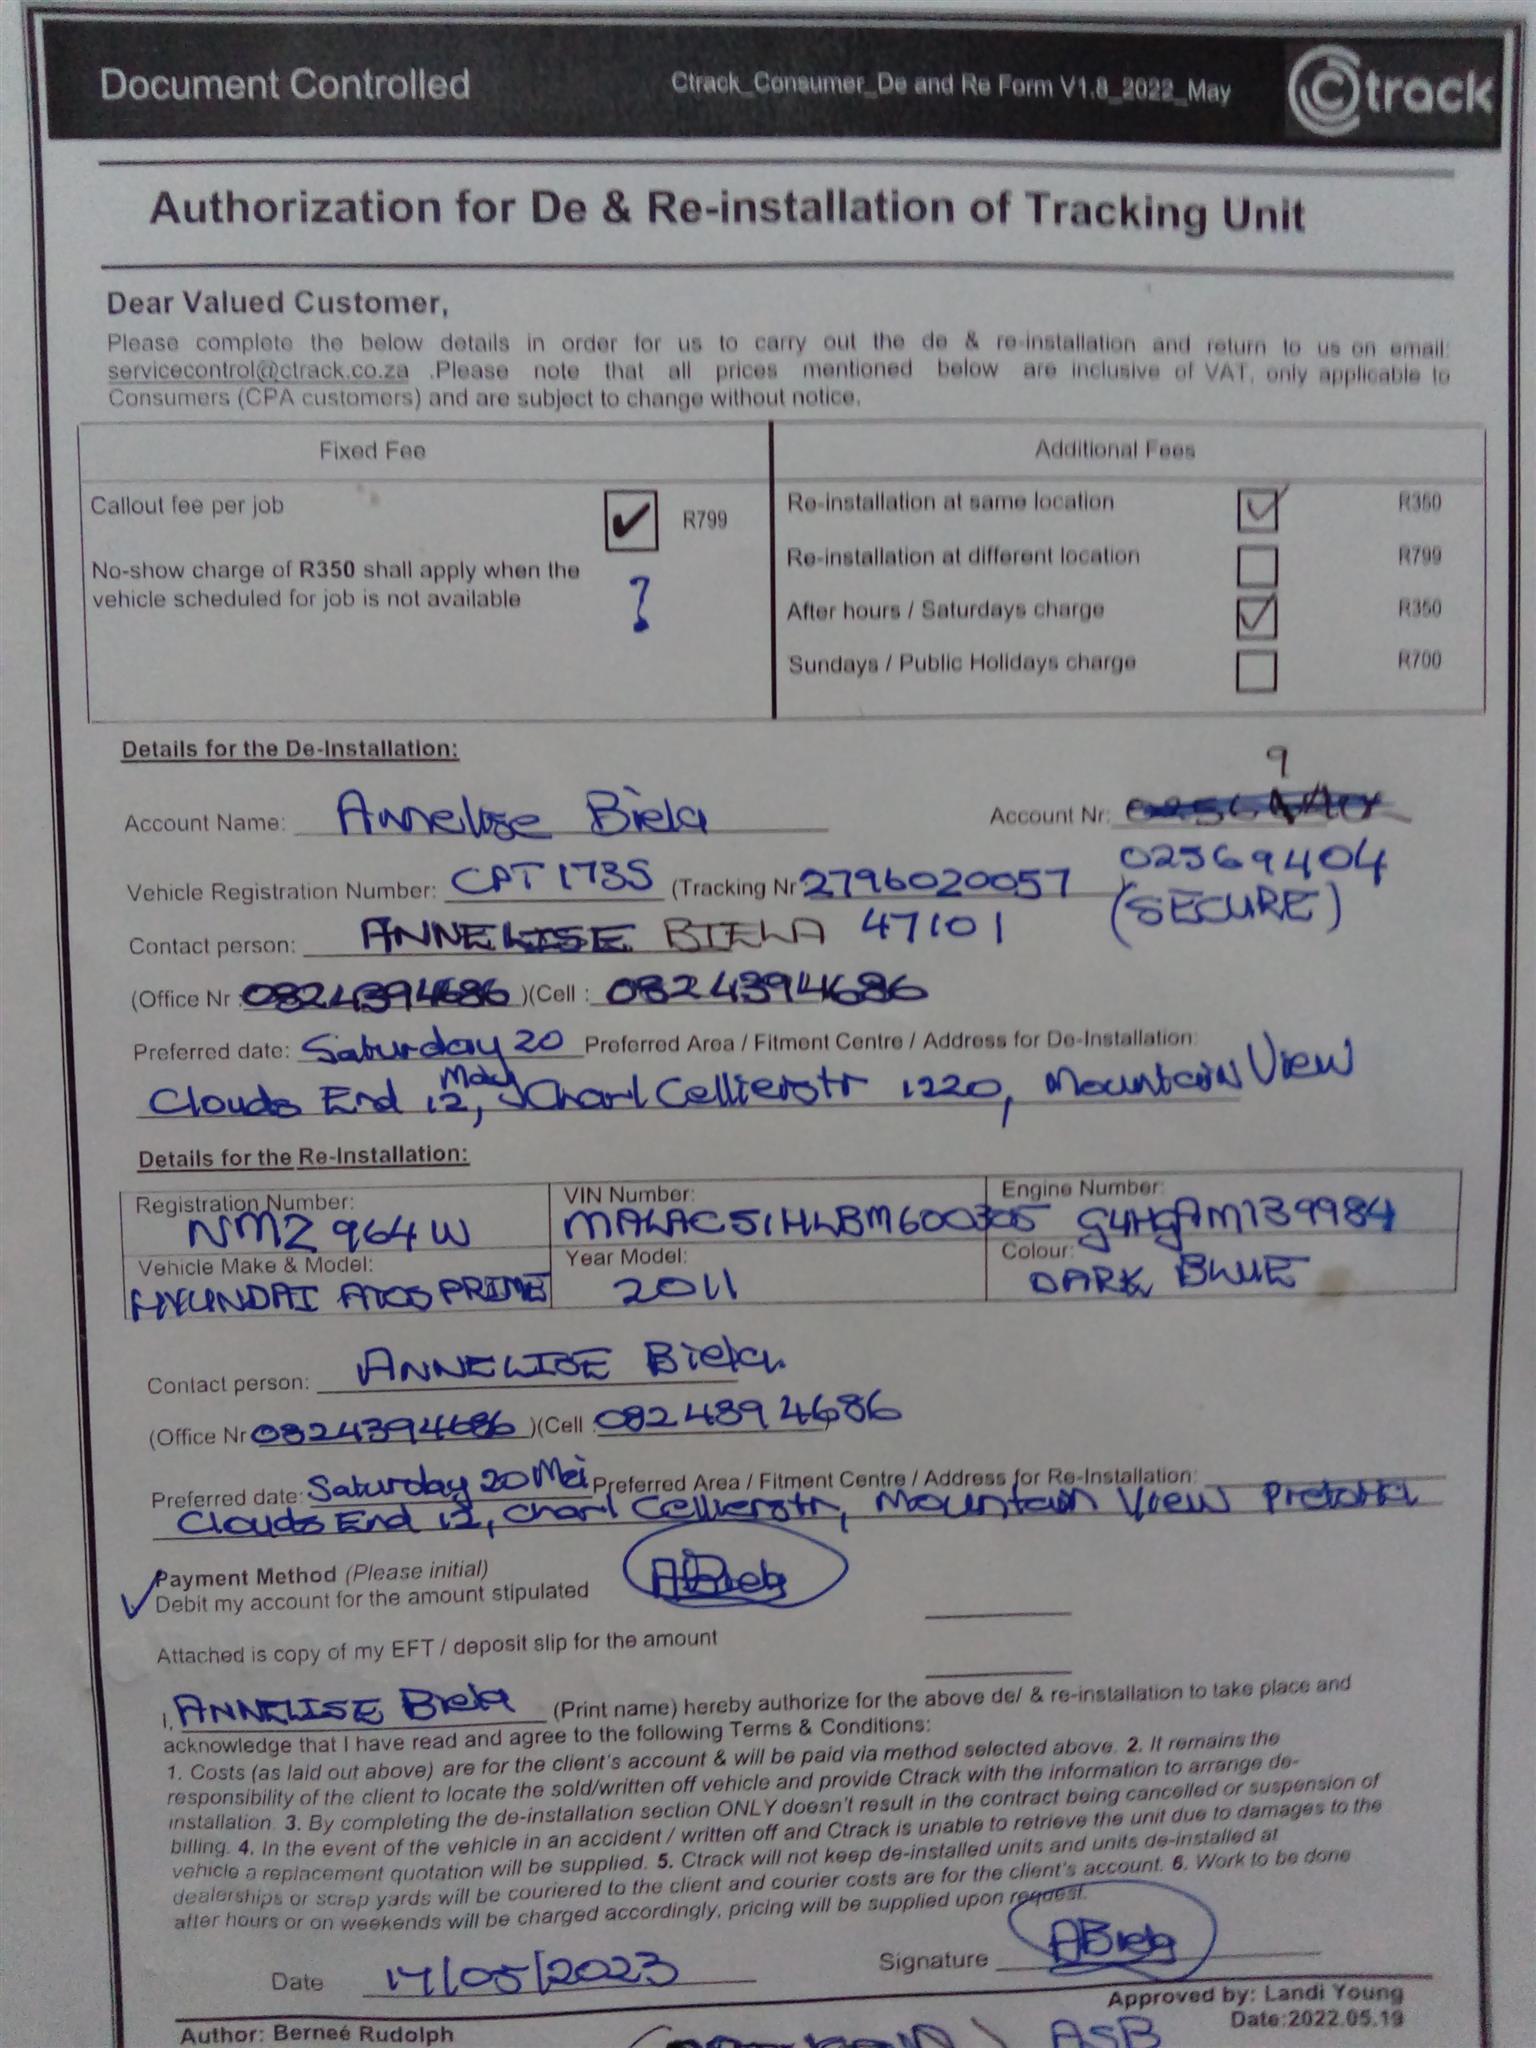 Document Controlled Ctrack_Consumer_De and Re Form V1.8_2022_May Ctrack
Authorization for De & Re-installation of Tracking Unit
Dear Valued Customer,
Please complete the below details in order for us to carry out the de & re-installation and return to us on email:
servicecontrol@ctrack.co.za .Please note that all prices mentioned below are inclusive of VAT, only applicable to
Consumers (CPA customers) and are subject to change without notice.
Fixed Fee
Callout fee per job ✔ R799
No-show charge of R350 shall apply when the
vehicle scheduled for job is not available ?
Additional Fees
Re-installation at same location ✓ R350
Re-installation at different location R799
After hours / Saturdays charge ✓ R350
Sundays / Public Holidays charge R700
Details for the De-Installation:
9
Account Name: Annelise Biela Account Nr:
02569404
Vehicle Registration Number: CPT173S (Tracking Nr 2796020057
(SECURE)
Contact person: ANNELISE BIELA 47101
(Office Nr : 0824394686 )(Cell : 0824394686
Preferred date: Saturday 20 May Preferred Area / Fitment Centre / Address for De-Installation:
Clouds End 12, Charl Cellierstr 1220, Mountain View
Details for the Re-Installation:
Registration Number: NMZ 964 W
VIN Number: MALAC51HLBM600305
Engine Number: G4HGAM139984
Vehicle Make & Model: HYUNDAI ATOS PRIME
Year Model: 2011
Colour: DARK BLUE
Contact person: ANNELISE Biela
(Office Nr 0824394686 )(Cell : 0824394686
Preferred date: Saturday 20 Mei Preferred Area / Fitment Centre / Address for Re-Installation:
Clouds End 12, Charl Cellierstr, Mountain View Pretoria
Payment Method (Please initial)
✓ Debit my account for the amount stipulated ABiela
Attached is copy of my EFT / deposit slip for the amount
I, ANNELISE Biela (Print name) hereby authorize for the above de/ & re-installation to take place and
acknowledge that I have read and agree to the following Terms & Conditions:
1. Costs (as laid out above) are for the client's account & will be paid via method selected above. 2. It remains the
responsibility of the client to locate the sold/written off vehicle and provide Ctrack with the information to arrange de-
installation. 3. By completing the de-installation section ONLY doesn't result in the contract being cancelled or suspension of
billing. 4. In the event of the vehicle in an accident / written off and Ctrack is unable to retrieve the unit due to damages to the
vehicle a replacement quotation will be supplied. 5. Ctrack will not keep de-installed units and units de-installed at
dealerships or scrap yards will be couriered to the client and courier costs are for the client's account. 6. Work to be done
after hours or on weekends will be charged accordingly, pricing will be supplied upon request.
Date 17/05/2023 Signature ABiela
Approved by: Landi Young
Author: Berneé Rudolph Date:2022.05.19
ASB